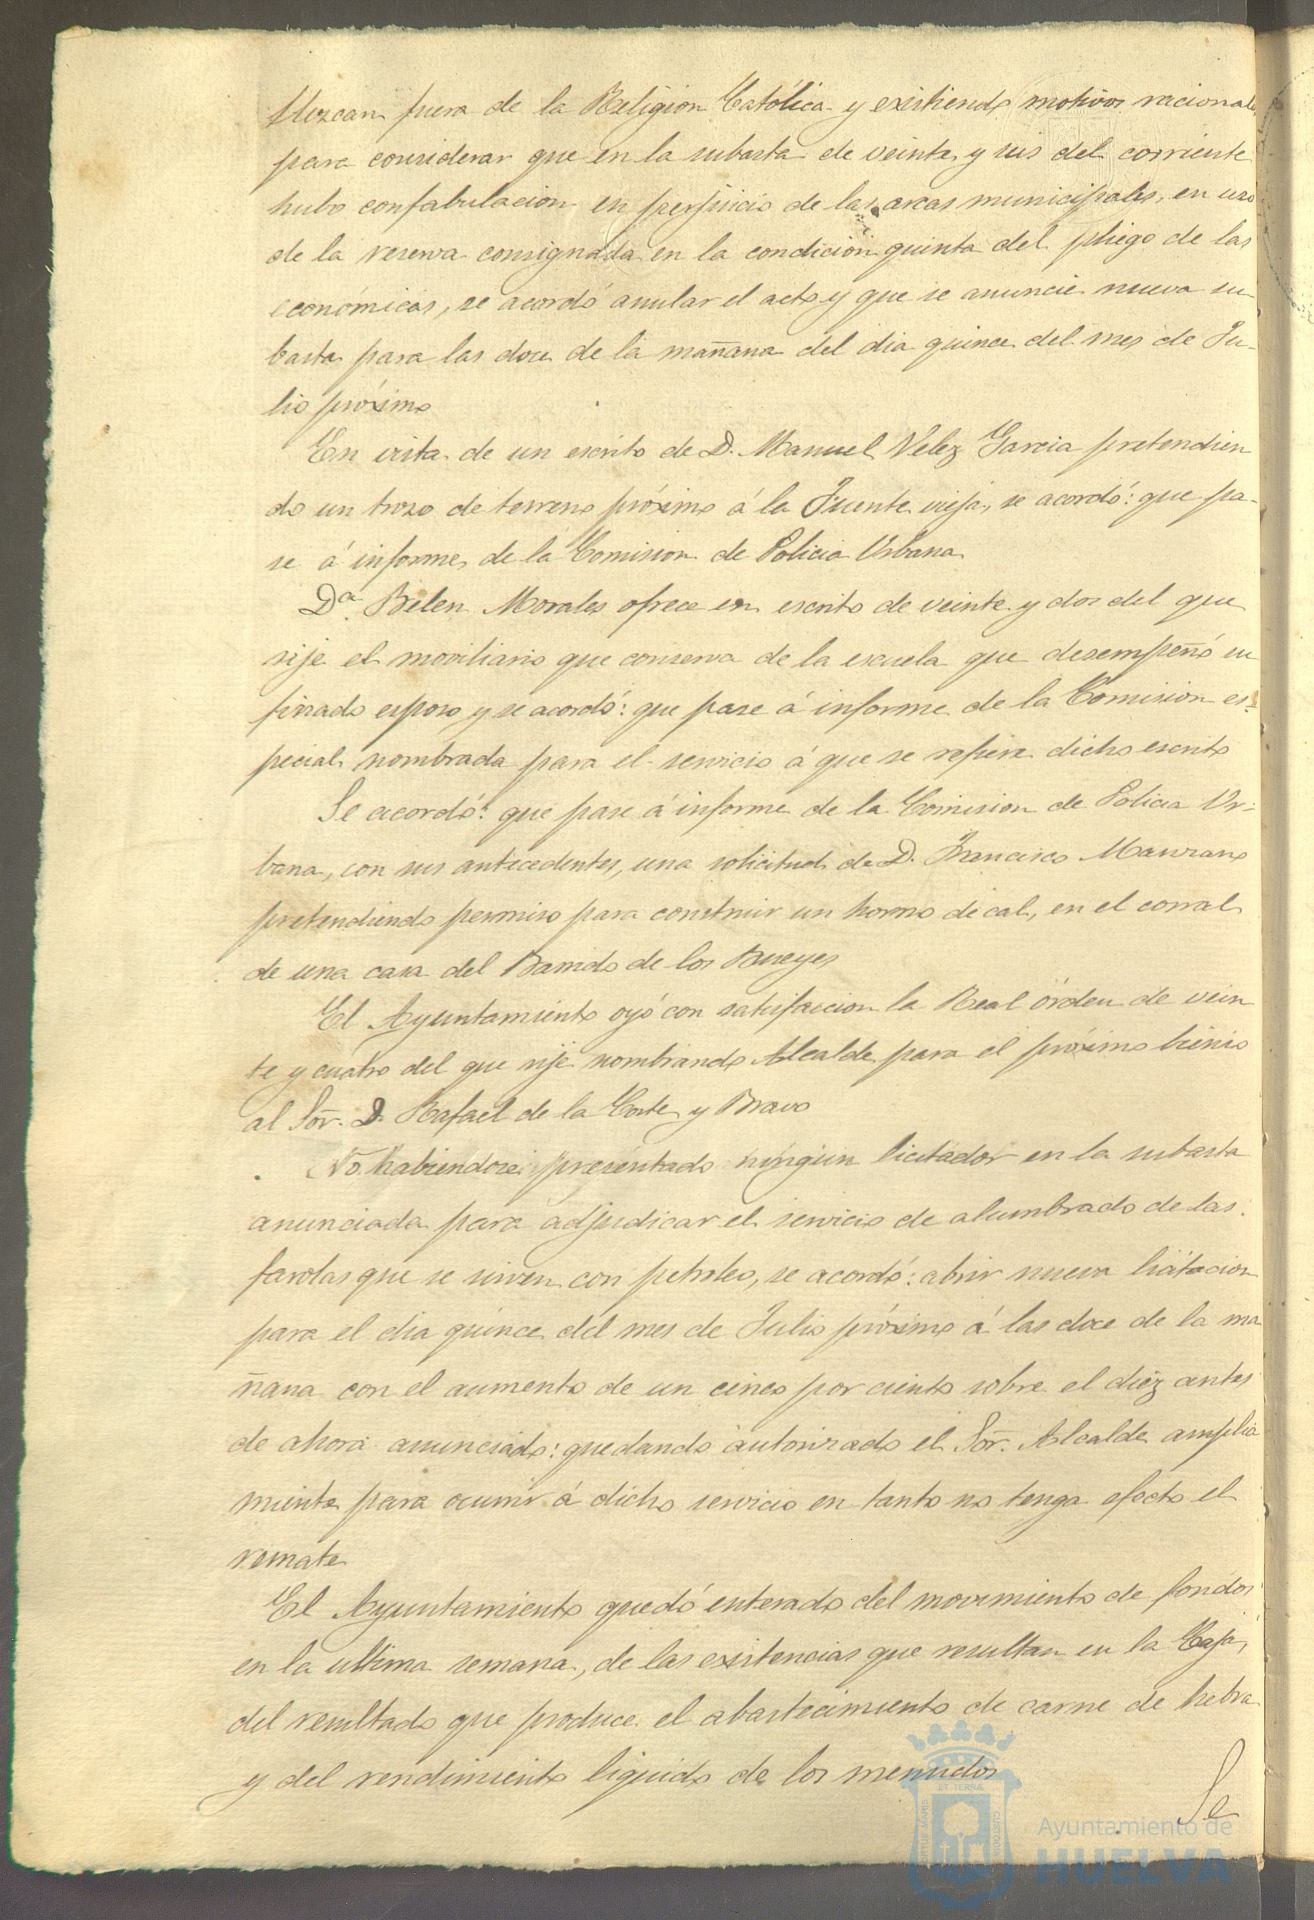 llezcan fuera de la Religion Católica y existiendo motivos racionales
para considerar que en la subasta de veinte y seis del corriente
hubo confabulacion en perjuicio de las arcas municipales, en uso
de la reserva consignada en la condición quinta del pliego de las
económicas, se acordó anular el acto y que se anuncie nueva su-
basta para las doce de la mañana del dia quince del mes de Ju-
lio próximo
En vista de un escrito de D. Manuel Velez Garcia pretendien
do un trozo de terreno próximo á la Fuente vieja, se acordó: que pa-
se á informe de la Comision de Policia Urbana
Dª Belen Morales ofrece en escrito de veinte y dos del que
rije el moviliario que conserva de la escuela que desempeñó su
finado esposo y se acordó: que pase á informe de la Comision es-
pecial nombrada para el servicio á que se refiere dicho escrito
Se acordó: que pase á informe de la Comision de Policia Ur-
bana, con sus antecedentes, una solicitud de D. Francisco Manzano
pretendiendo permiso para construir un horno de cal, en el corral
de una casa del Barrido de los Bueyes
El Ayuntamiento oyó con satisfaccion la Real órden de vein
te y cuatro del que rije nombrando Alcalde para el próximo bienio
al Sor. D. Rafael de la Corte y Bravo
No habiendose presentado ningun licitador en la subasta
anunciada para adjudicar el servicio de alumbrado de las
farolas que se sirven con petroleo, se acordó: abrir nueva licitacion
para el dia quince del mes de Julio próximo á las doce de la ma
ñana con el aumento de un cinco por ciento sobre el diez antes
de ahora anunciado: quedando autorizado el Sor. Alcalde amplia
mente para ocurrir á dicho servicio en tanto no tenga efecto el
remate
El Ayuntamiento quedó enterado del movimiento de fondos
en la ultima semana, de las existencias que resultan en la Caja,
del resultado que produce el abastecimiento de carne de hebra
y del rendimiento liquido de los menudos
Se
Ayuntamiento de
HUELVA